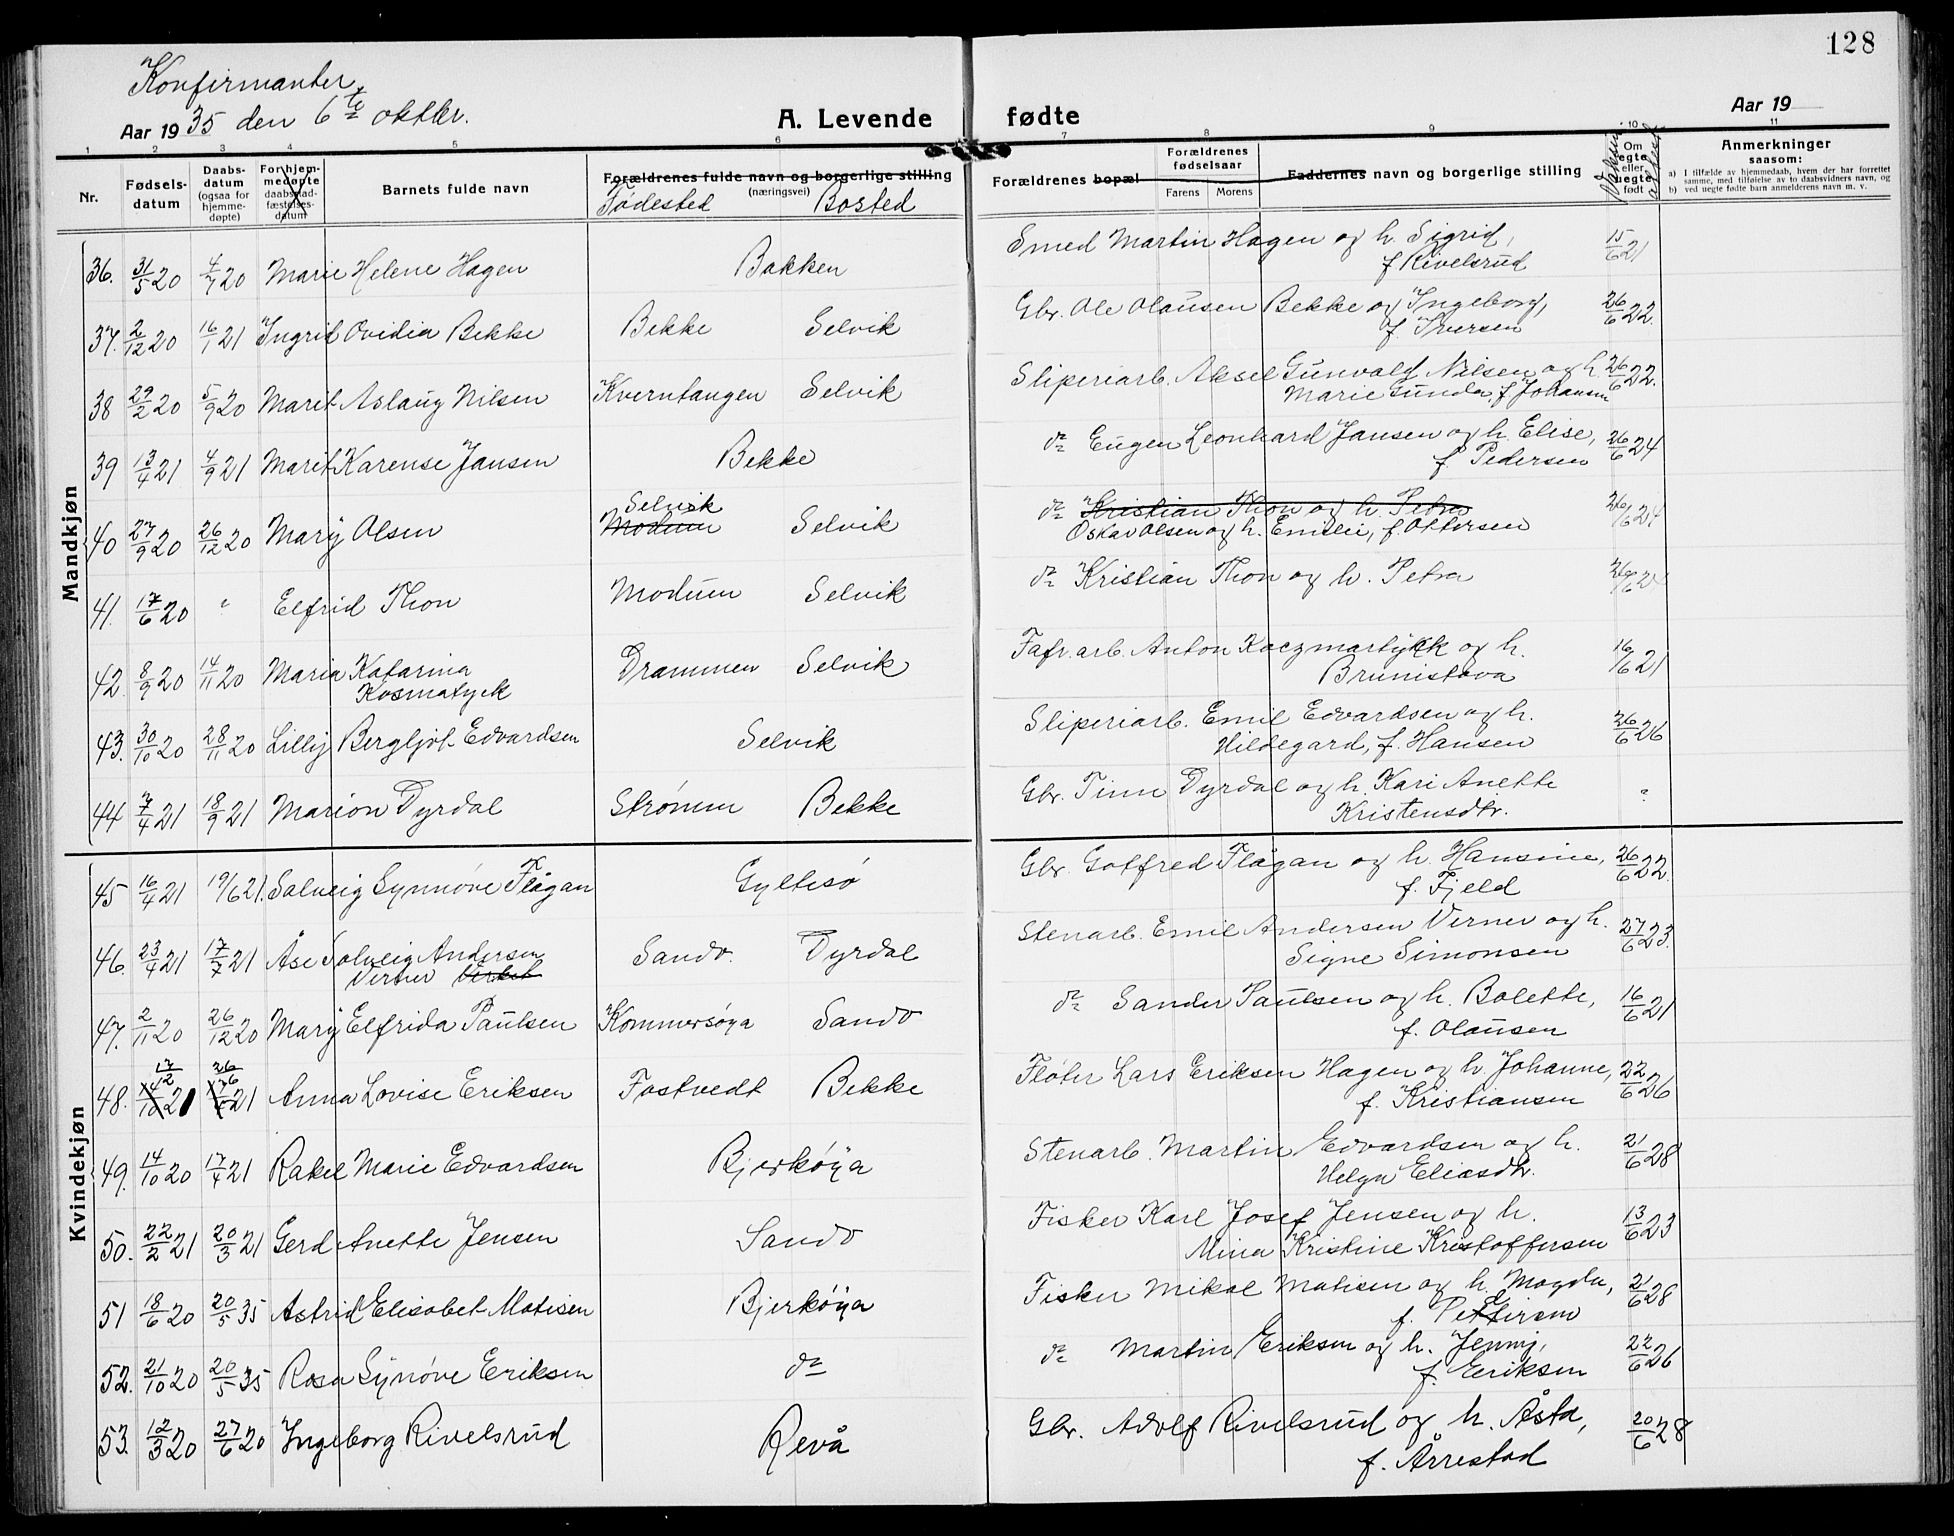 128
Konfirmanter
Aar 1935 den 6te oktbr.
A. Levende fødte
Aar 19
1 2 3 4 5 6 7 8 9 10 11
Nr.
Fødsels-datum
Daabs-datum (ogsaa for hjemme-døpte)
For hjem-medøpte daabsstad-fæstelses-datum
Barnets fulde navn
Forældrenes fulde navn og borgerlige stilling (næringsvei)
Fødested Bosted
Forældrenes bopæl
Forældrenes fødselsaar
Farens Morens
Faddernes navn og borgerlige stilling
Om egte eller uegte født
Anmerkninger saasom:
a) I tilfælde av hjemmedaab, hvem der har forrettet samme, med tilføielse av to daabsvidners navn, og
b) ved uegte fødte barn anmelderens navn m. v.
Mandkjøn
36. 31/5 20 4/7 20 Marie Helene Hagen Bakken Smed Martin Hagen og h. Sigrid, 15/6 21
f. Rivelsrud
37. 2/12 20 16/1 21 Ingrid Ovidia Bekke Bekke Selvik Gbr. Ole Olausen Bekke og Ingeborg, 26/6 22.
f. Iversen
38 29/2 20 5/9 20 Marit Aslaug Nilsen Kverntangen Selvik Sliperiarb. Aksel Gunvald Nilsen og h. 26/6 22.
Marie Gunda, f. Johansen
39 13/4 21 4/9 21 Marit Karense Jansen Bekke do Eugen Leonhard Jansen og h. Elise, 26/6 24
f. Pedersen
40 27/9 20 26/12 20 Mary Olsen Modum Selvik Selvik do Kristian Thon og h. Petra 26/6 24
Oskar Olsen og h. Emilie, f. Ottersen
41. 17/6 20 " Elfrid Thon Modum Selvik do Kristian Thon og h. Petra 26/6 24
42. 8/9 20 14/11 20 Maria Katarina Drammen Selvik Fabr.arb. Anton Kaczmartyck og h. 16/6 21
Kosmatyck Brunistova
43. 30/10 20 28/11 20 Lilly Bergljot Edvardsen Selvik Sliperiarb. Emil Edvardsen og h. 26/6 26
Hildegard, f. Hansen
44 7/4 21 18/9 21 Marion Dyrdal Strømm Bekke Gbr. Finn Dyrdal og h. Kari Anette "
Kristensdtr.
Kvindekjøn
45 16/4 21 19/6 21. Solveig Synnøve Flågan Gyltesø Gbr. Gotfred Flågan og h. Hansine, 26/6 22.
f. Fjeld
46. 23/4 21 17/7 21 Åse Solveig Andersen Sando. Dyrdal Stenarb. Emil Andersen Verner og h. 27/6 23.
Verner Signe Simonsen
47. 2/11 20 26/12 20 Mary Elfrida Paulsen Kommersøya Sando do Sander Paulsen og h. Bolette, 16/6 21
f. Olausen
48. 17/2 21 26/6 21 Anna Lovise Eriksen Fostvedt Bekke Fløter Lars Eriksen Hagen og h. Johanne, 22/6 26
f. Kristiansen
49. 14/10 20 17/4 21 Rakel Marie Edvardsen Bjerkøya Stenarb. Martin Edvardsen og h. 21/6 28
Helga Eliasdtr.
50. 22/2 21 20/3 21 Gerd Anette Jensen Sando Fisker Karl Josef Jensen og h. 13/6 23
Mina Kristine Kristoffersen
51 18/6 20 20/5 35 Astrid Elisabet Matisen Bjerkøya Fisker Mikal Matisen og h. Magda, 21/6 28
f. Pettersen
52. 21/10 20 20/5 35 Rosa Synøve Eriksen do do Martin Eriksen og h. Jenny, 22/6 26
f. Eeriksen
53. 12/3 20 27/6 20 Ingeborg Rivelsrud Revå Gbr. Adolf Rivelsrud og h. Åsta, 20/6 28
f. Årrestad